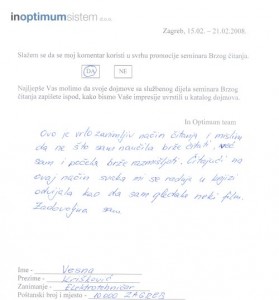 inoptimumsistem d.o.o.
Zagreb, 15.02. – 21.02.2008.
Slažem se da se moj komentar koristi u svrhu promocije seminara Brzog čitanja.
DA
NE
Najljepše Vas molimo da svoje dojmove sa službenog dijela seminara Brzog
čitanja zapišete ispod, kako bismo Vaše impresije uvrstili u katalog dojmova.
In Optimum team
Ovo je vrlo zanimljiv način čitanja i mislim
da ne što sam naučila brže čitati, već
sam i počela brže razmišljati. Čitajući na
ovaj način svaka mi se radnja u knjizi
odvijala kao da sam gledala neki film.
Zadovoljna sam.
Ime - Vesna
Prezime - Krišković
Zanimanje - Elektrotehničar
Poštanski broj i mjesto - 10 000 ZAGREB